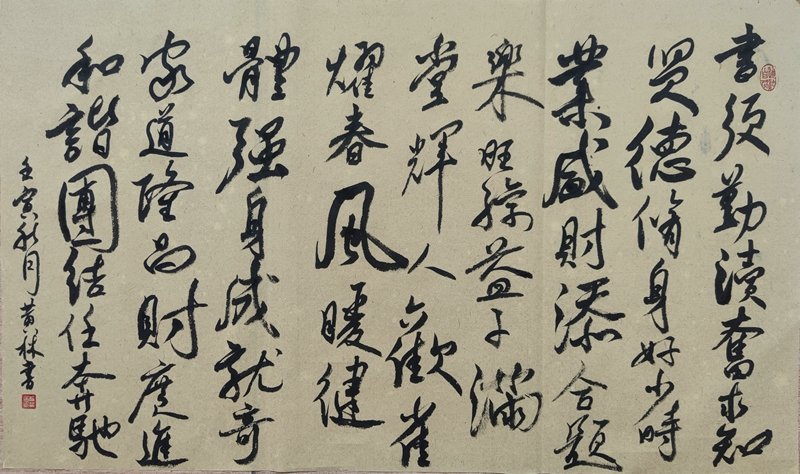 書須勤讀奮求知
贤德脩身好少時
業盛財添合題
樂旺孫益子滿
堂輝人六歡雀
耀春風暖健
體强身成就奇
家道隆昌財廣進
和諧團結任奔馳
壬寅秋月黄林書